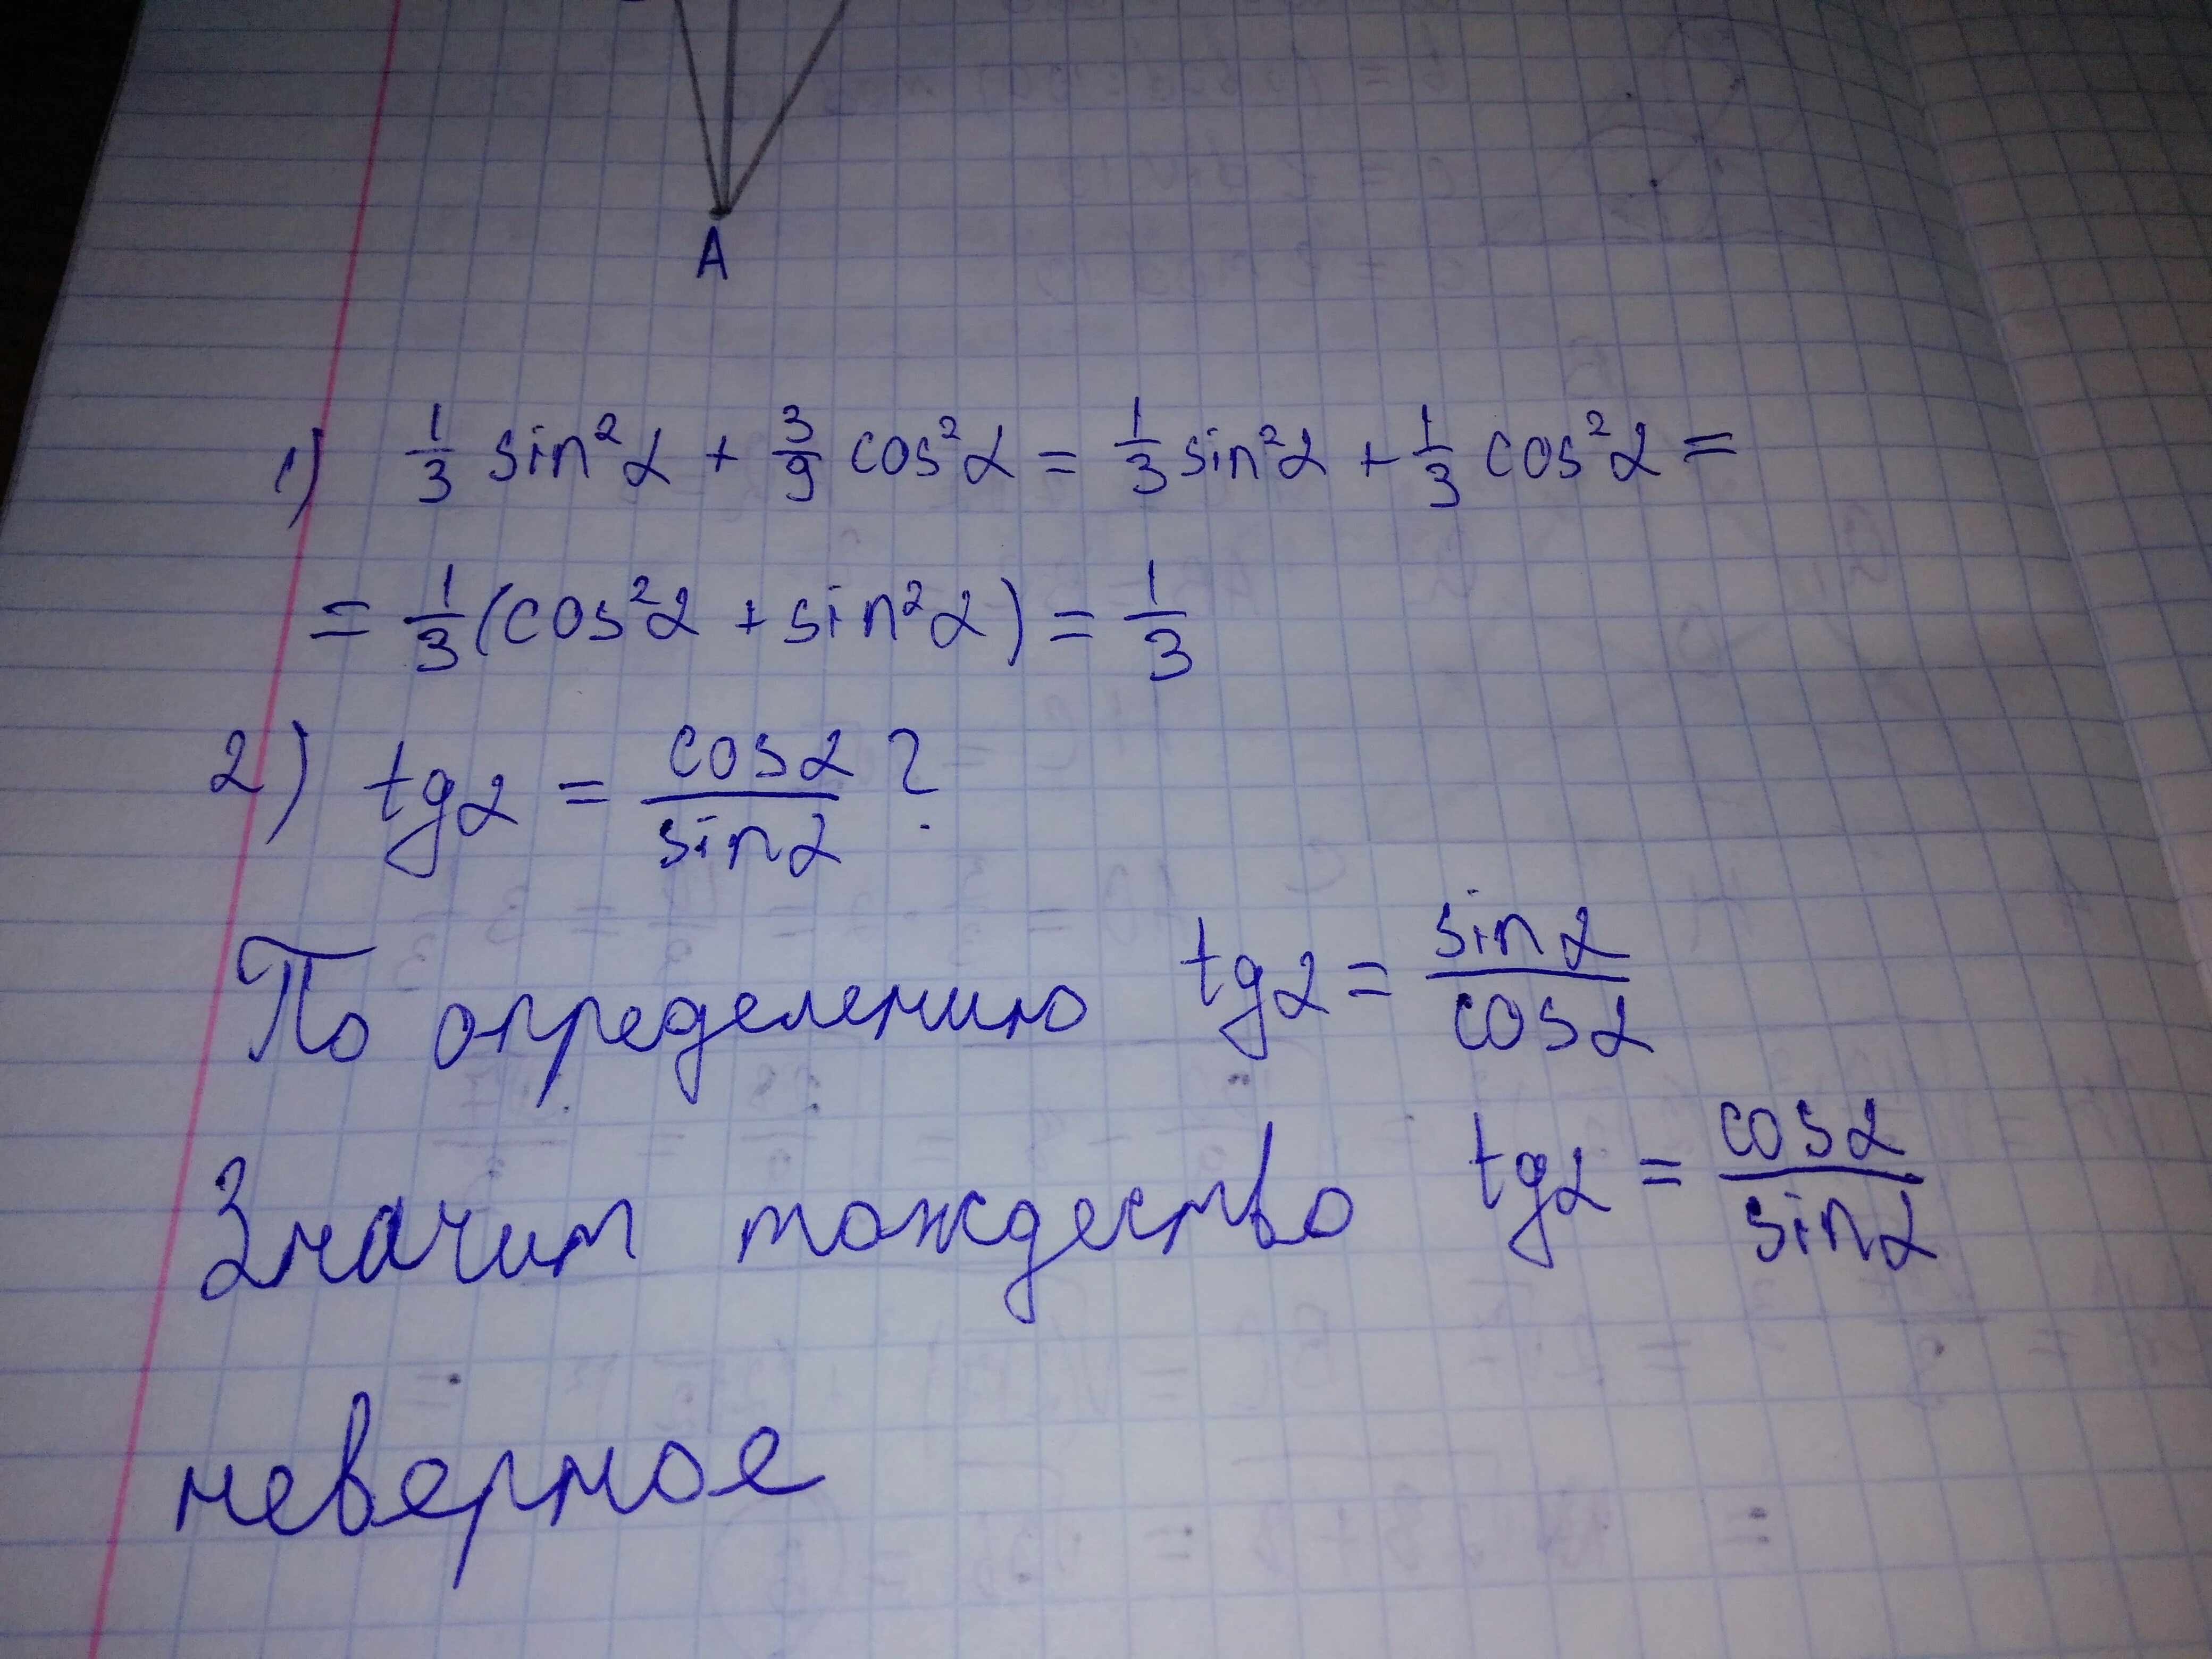 A
1) 1/3 sin²α + 3/9 cos²α = 1/3 sin²α + 1/3 cos²α =
= 1/3 (cos²α + sin²α) = 1/3
2) tgα = cosα/sinα ?
По определению tgα = sinα/cosα
Значит тождество tgα = cosα/sinα
неверное